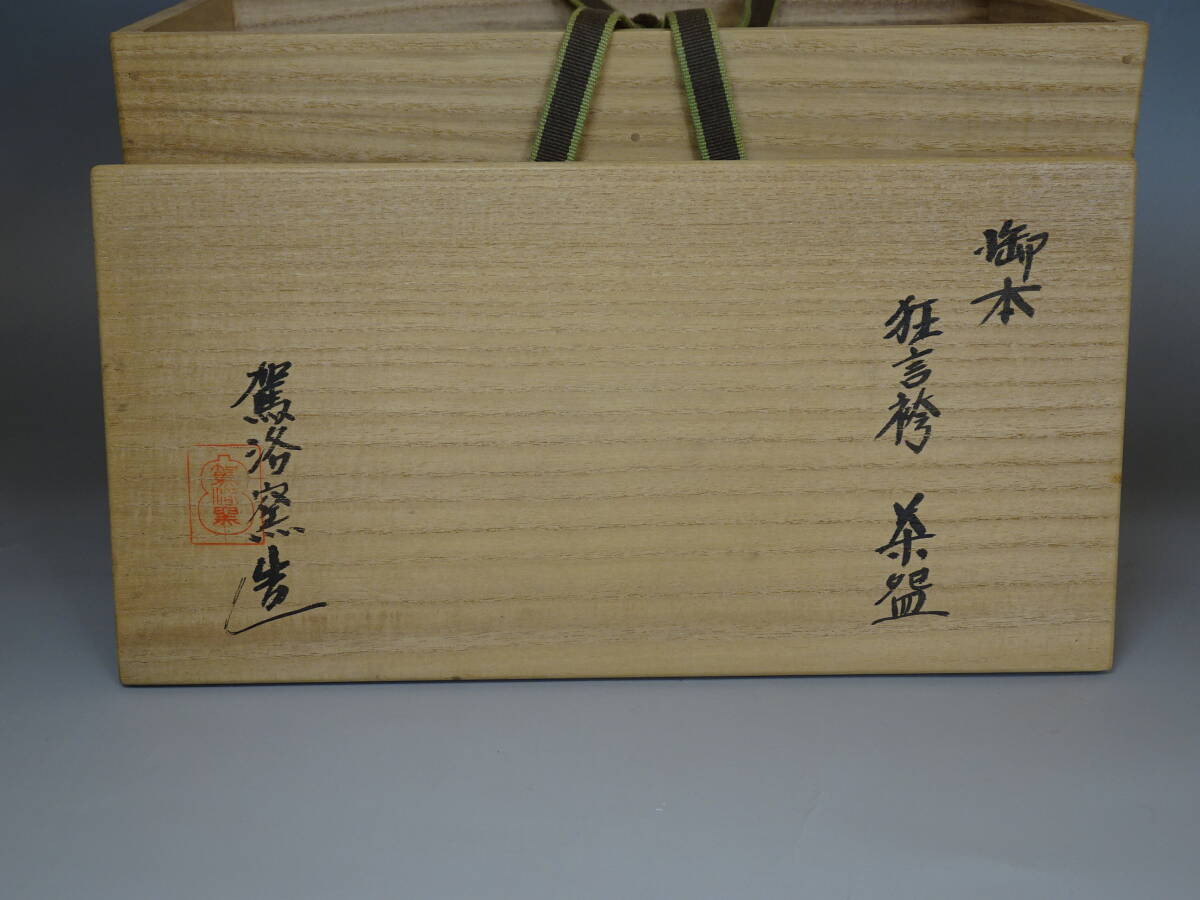 御本
狂言袴 菓器
駕洛窯造
駕洛窯